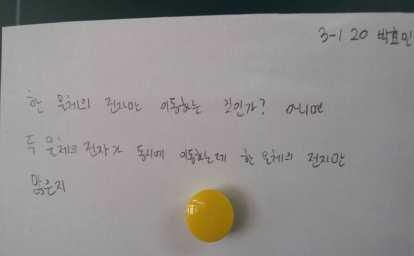 3-1 20 박효민
한 물체의 전자만 이동하는 것인가? 아니면
두 물체의 전자가 동시에 이동하는데 한 물체의 전자만
많은지